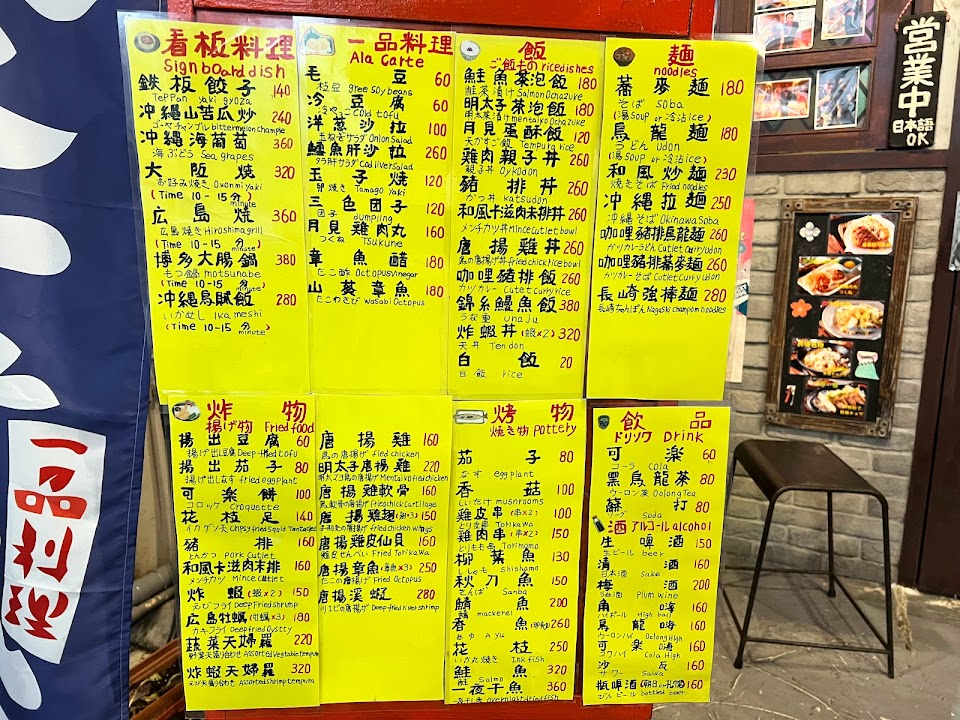 看板料理
Signboard dish
鉄板餃子 140
TEPPan yaki gyoza
沖繩山苦瓜炒 240
ゴーヤチャンプル bittermelon chample
沖繩海葡萄 360
海ぶどう Sea grapes
大阪燒 320
お好み焼き Okonmiyaki
(Time 10-15分)
minute
広島燒 360
広島焼き Hiroshima grill
(Time 10-15分)
minute
博多大腸鍋 380
もつ鍋 motsunabe
(Time 10-15分)
minute
沖繩烏賊飯 280
いかめし Ika meshi
(Time 10-15分)
minute
一品料理
Ala Carte
毛豆 60
枝豆 gree soy beans
冷豆腐 60
冷やっこ cold tofu
洋葱沙拉 100
玉ねぎサラダ Onion Salad
鱈魚肝沙拉 260
タラ肝サダ Cad liver Salad
玉子燒 120
卵焼き Tamago yaki
三色団子 120
団子 dumpling
月見雞肉丸 160
つくね Tsukune
章魚醋 180
たこ酢 Octopus vinegar
山葵章魚 180
たこわさび Wasabi Octopus
飯
ご飯もの rice dishes
鮭魚茶泡飯 180
鮭茶漬け Salmon Ochazuke
明太子茶泡飯 180
明太茶漬け mentaiko Ochazuke
月見蛋酥飯 120
天かすご飯 Tempura rice
雞肉親子丼 260
親子丼 Oykodon
豬排丼 260
かつ丼 katsudon
和風卡滋肉末排丼 260
メンチカツ丼 Mince Cutlet bowl
唐揚雞丼 260
鳥の唐揚げ丼 fried chick rice bowl
咖哩豬排飯 260
カツカレー Cutet Curry rice
錦糸鰻魚飯 380
うな重 una Ju
炸蝦丼(蝦×2) 320
天丼 Tendon
白飯 20
白飯 rice
麵
noodles
蕎麥麵 180
そば soba
(湯 Soup or 冷沾 ice)
烏龍麵 180
うどん udon
(湯 Soup or 冷沾 ice)
和風炒麵 230
焼きそば Fried noodles
沖繩拉麵 250
沖縄そば Okinawa Soba
咖哩豬排烏龍麵 260
カツカレーうどん Cutlet Curry udon
咖哩豬排蕎麥麵 260
カツカレーそば Cutlet Curry udon
長崎強棒麵 280
長崎ちゃんぽん Nagaski champom noodles
炸物
揚げ物 Fried food
揚出豆腐 60
揚げ出し豆腐 Deep-fried tofu
揚出茄子 80
揚げ出しなす fried eggplant
可樂餅 100
コロッケ Croquette
花枝足 140
イカゲソ天 Chrisy fried Squid Tantacles
豬排 160
とんかつ Pork Cutlet
和風卡滋肉末排 160
メンチカツ Mince Cutlet
炸蝦(蝦×2) 150
えびフライ Deep fried shrimp
広島牡蠣(牡蠣×3) 180
カキフライ Deep fried Oystty
蔬菜天婦羅 220
野菜天ぷら盛り合わせ Assorted Vegetable tempura
炸蝦天婦羅 320
えび天ぷら盛り合わせ Assorted Shrimp tempura
唐揚雞 160
鳥の唐揚げ fried chicken
明太子唐揚雞 220
明太マヨ鳥の唐揚げ Mentaiko fried chicken
唐揚雞軟骨 160
鳥軟骨の唐揚げ fried chick Cartilage
唐揚雞翅(翅×3) 150
手羽先の唐揚げ fried chicken wings
唐揚雞皮仙貝 160
鶏皮せんべい Fried Torikawa
唐揚章魚(章魚×3) 250
たこの唐揚げ Fried Octopus
唐揚溪蝦 280
川エビの唐揚げ Deep-fried river shrimp
烤物
焼き物 pottery
茄子 80
なす eggplant
香菇 100
しいたけ musnrooms
雞皮串(串×2) 100
とり皮串 Torikawa
雞肉串(串×2) 150
とりもも串 Torimomo
柳葉魚 130
ししゃも shishamo
秋刀魚 150
さんま Sanba
鯖魚 200
さば mackerel
香魚 260
あゆ Ayu
花枝 250
いか丸焼き Inkfish
鮭魚 320
Salmo
一夜干魚 360
一夜干し魚 overnight dried fish
飲品
ドリンク Drink
可樂 60
コーラ Cola
黑烏龍茶 80
ウーロン茶 Oolong Tea
蘇打 80
ソーダ Soda
酒 アルコール alcohol
生啤酒 150
生ビール beer
清酒 160
日本酒 Sake
梅酒 200
うめ酒 Plum wine
角嗨 160
ハイボール High ball
烏龍嗨 160
ウーロンハイ Oolong High
可樂嗨 160
コクハイ Cola High
沙瓦 160
サワー Sawa
瓶啤酒(朝日or札幌) 160
びんビール bottled beer
営業中
日本語
OK
一品料理